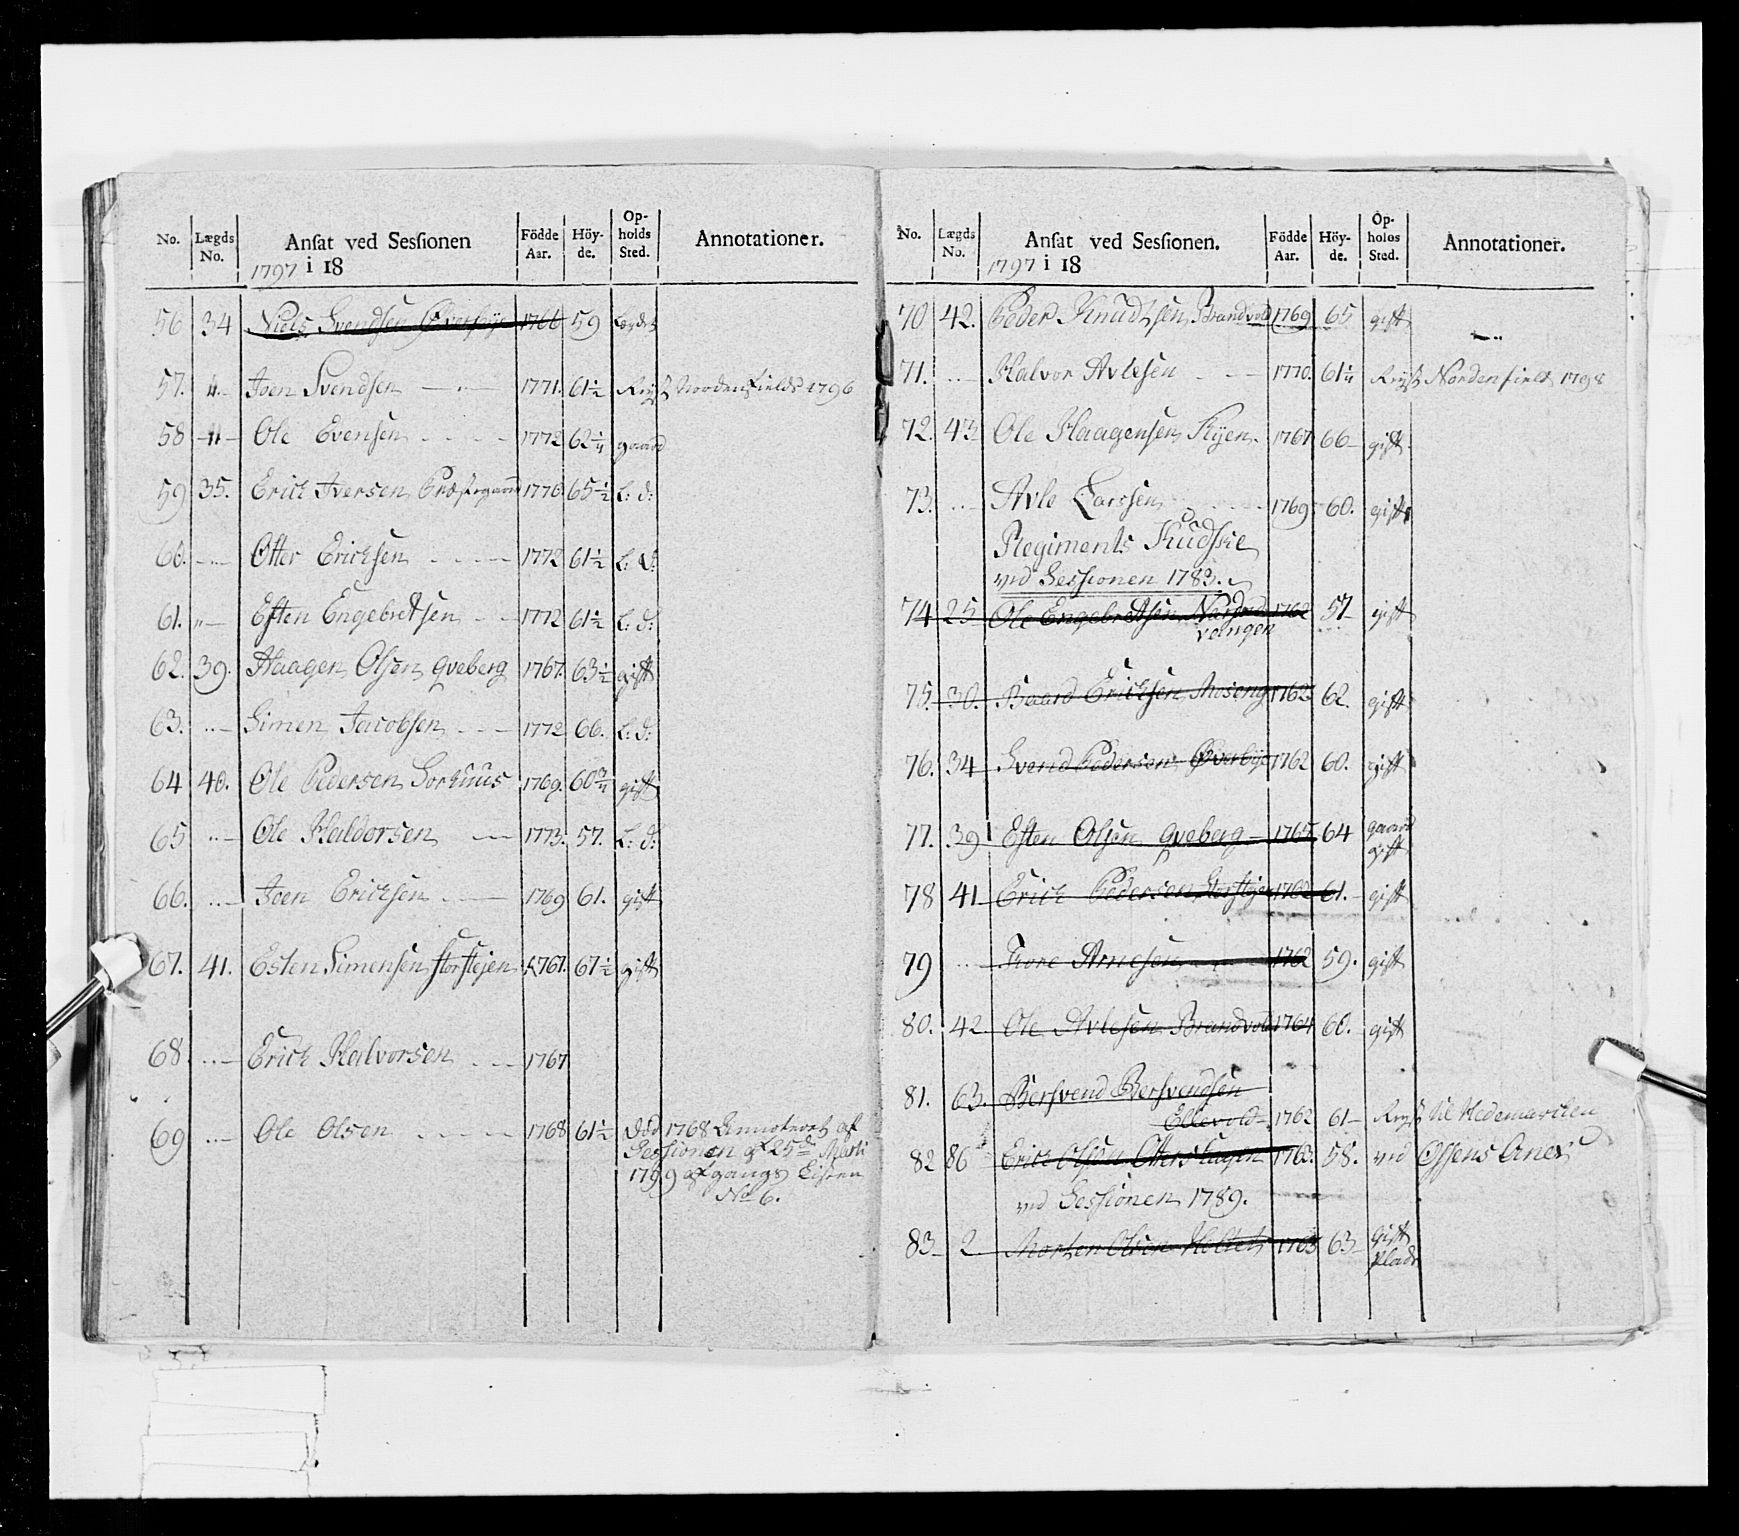 No. Lægds No. Ansat ved Sessionen 1797 i 18 Födde Aar. Höyde. Opholds Sted. Annotationer.
56 34 Niels Svendsen Øverbye 1766 59
57. 〃 Joen Svendsen 1771. 61½ Reyst Nordenfields 1796
58 〃 Ole Evensen 1772 62¼ gaard
59 35. Erich Iversen Præstgaard 1770 65½ L: d:
60. 〃 Otter Erichsen 1772 61½ L: d:
61. 〃 Esten Engebretsen 1772 61½ L: d:
62. 39. Haagen Olsen qveberg 1767. 63½ gift
63. 〃 Simen Jacobsen 1772 66. L: d:
64 40. Ole Pedersen Sorhuus 1769. 60¾ gift
65 〃 Ole Haldorsen 1773. 57. L: d:
66. 〃 Joen Ericksen 1769 61. gift
67. 41. Esten Simensen Storstejen 1767. 67½ gift
68. 〃 Erich Halvorsen 1767
69 〃 Ole Olsen 1768 61½ Död 1768 Annoteret af
Sessionen af 25de Martii
1799 afgangs Listen
No 6.
No. Lægds No. Ansat ved Sessionen. 1797 i 18 Födde Aar. Höyde. Opholds Sted. Annotationer.
70 42. Peder Knudtsen Brandvold 1769 65 gift
71. 〃 Halvor Avlesen 1770. 61¼ Reyst Nordenfield 1798
72. 43 Ole Haagensen Ryen 1767 66 gift
73. 〃 Avle Larssen 1769 60. gift
Regiments Kudske
ved Sessionen 1783.
74 25 Ole Engebretsen Nordre 1762 57 gift
vangen
75. 30. Baard Erichsen Moseng 1762 62. gift
76. 34 Svend Pedersen Øverbye 1762 60. gift
77. 39 Esten Olsen qveberg 1765 64 gaard
gift
78 41 Erich Pedersen Storstejen 1762 61. gift
79 〃 Tore Arnesen 1762 59. gift
80. 42 Ole Avlesen Brandvold 1764 60. gift
81. 63. Bersvend Bersvendsen
Ellevold 1762 61 Reyst til Hedemarcken
82 86 Erich Olsen Otterstugen 1763. 58. ved Ossens Anex
ved Sessionen 1789.
83 2 Morten Olsen Holtet 1763 63 Gift
Plads